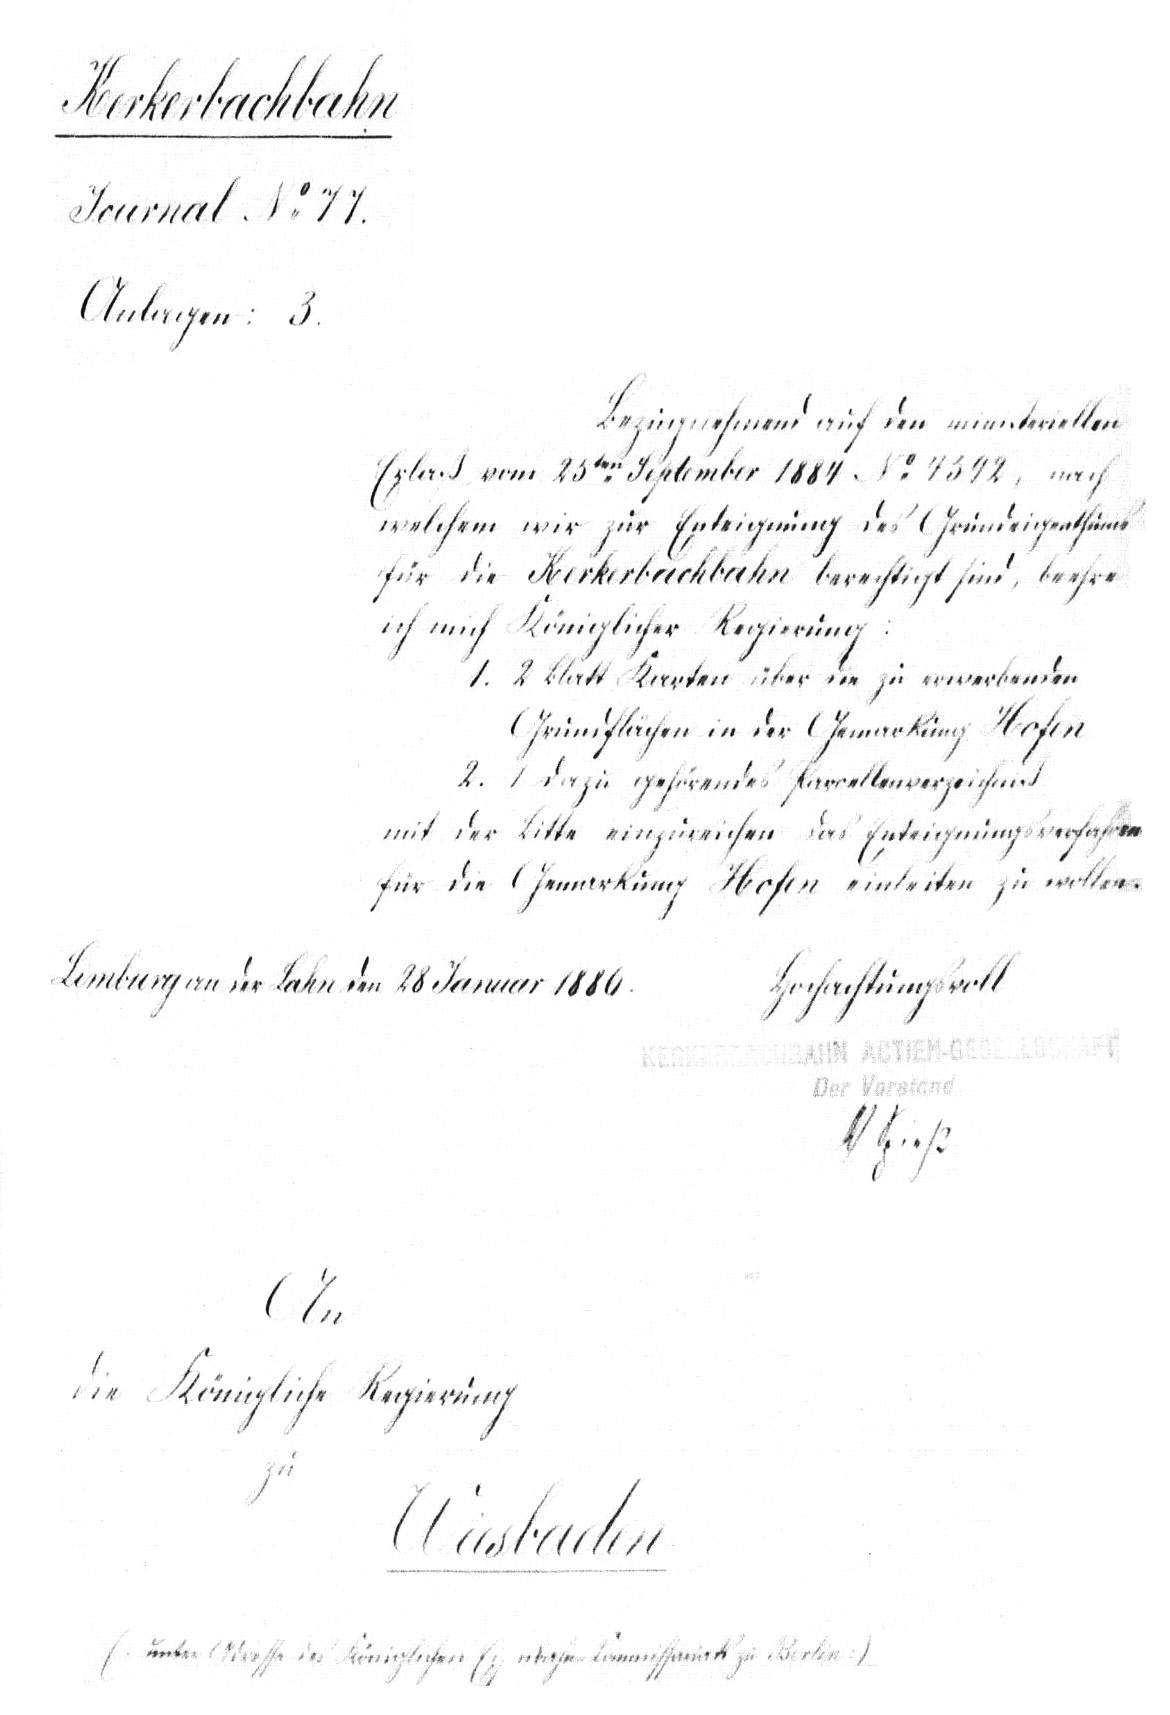 Kerkerbachbahn
Journal No 77.
Anlagen: 3.
Bezugnehmend auf den ministeriellen
Erlaß vom 25ten September 1884 No 4592, nach
welchem wir zur Enteignung des Grundeigenthums
für die Kerkerbachbahn berechtigt sind, beehre
ich mich Königlicher Regierung:
1. 2 Blatt Karten über die zu erwerbenden
Grundflächen in der Gemarkung Hofen
2. 1 dazu gehörendes Parcellenverzeichniß
mit der Bitte einzureichen das Enteignungsverfahren
für die Gemarkung Hofen einleiten zu wollen.
Limburg an der Lahn den 28 Januar 1886.
Hochachtungsvoll
KERKERBACHBAHN ACTIEN-GESELLSCHAFT
Der Vorstand
An
die Königliche Regierung
zu
Wiesbaden
(: unter Adresse des Königlichen Eisenbahn-Commissariats zu Berlin :)